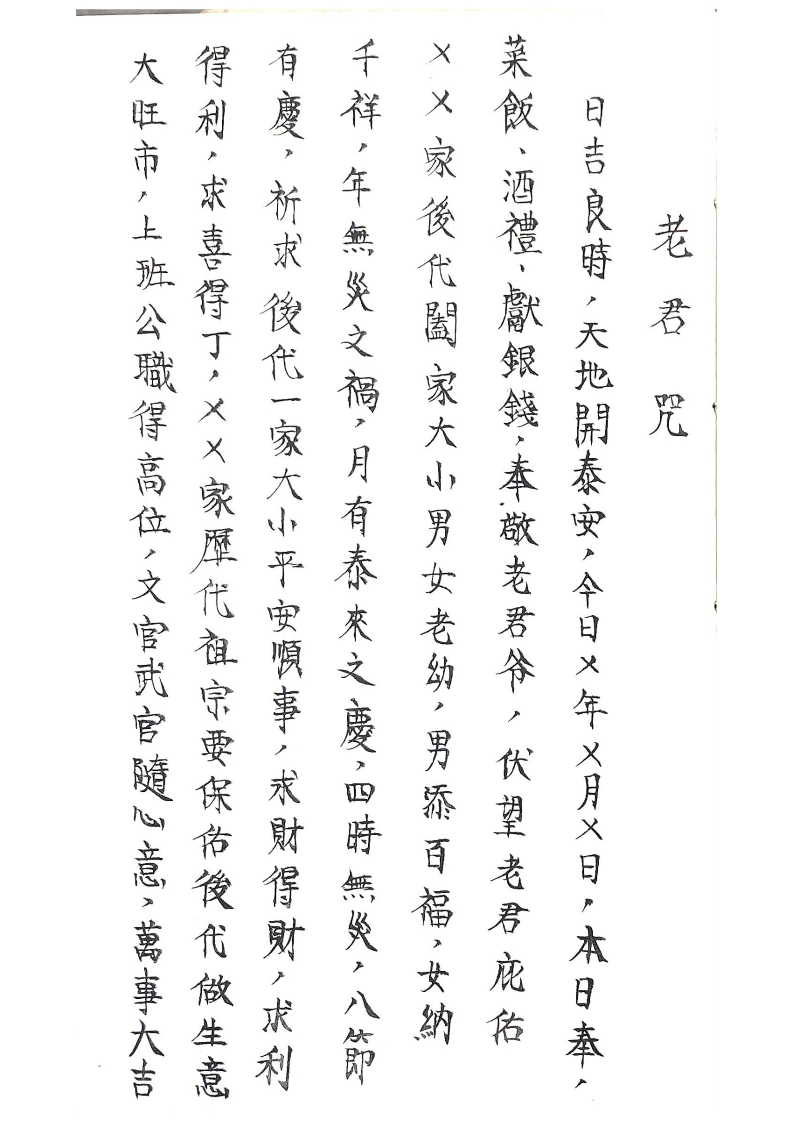 老君咒
日吉良時，天地開泰安，今日㐅年㐅月㐅日，本日奉，
菜飯、酒禮、獻銀錢，奉敬老君爷，伏望老君庇佑
㐅㐅家後代闔家大小男女老幼，男添百福，女納
千祥，年無災之禍，月有泰來之慶，四時無災，八節
有慶，祈求後代一家大小平安順事，求財得財，求利
得利，求喜得丁，㐅㐅家歷代祖宗要保佑後代做生意
大旺市，上班公職得高位，文官武官隨心意，萬事大吉